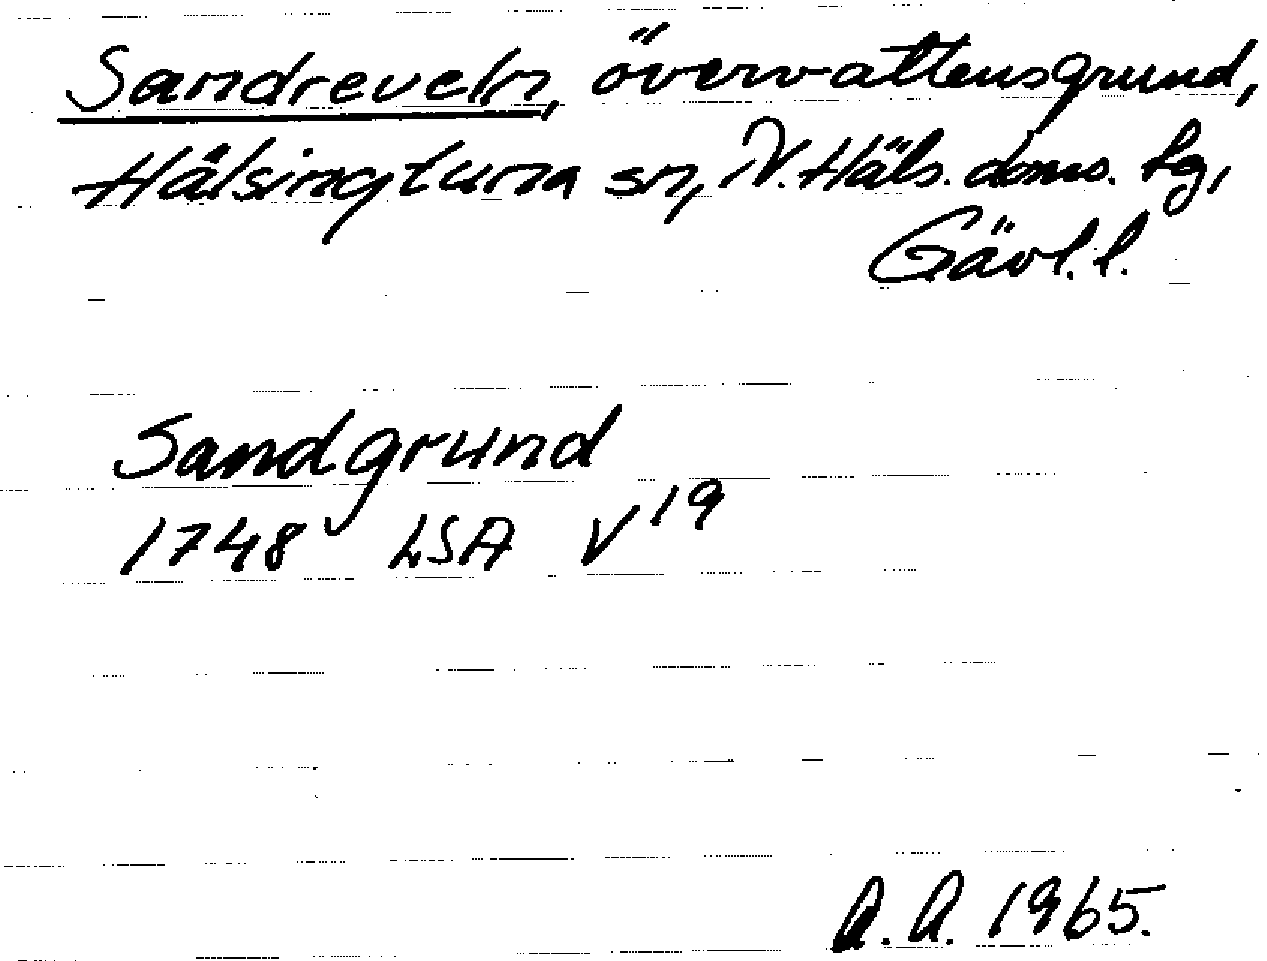 Sandreveln, övervattensgrund,
Hälsingtuna sn, N. Häls. doms. tg,
Gävl. l.
Sandgrund
1748 LSA V 19
A. A. 1965.